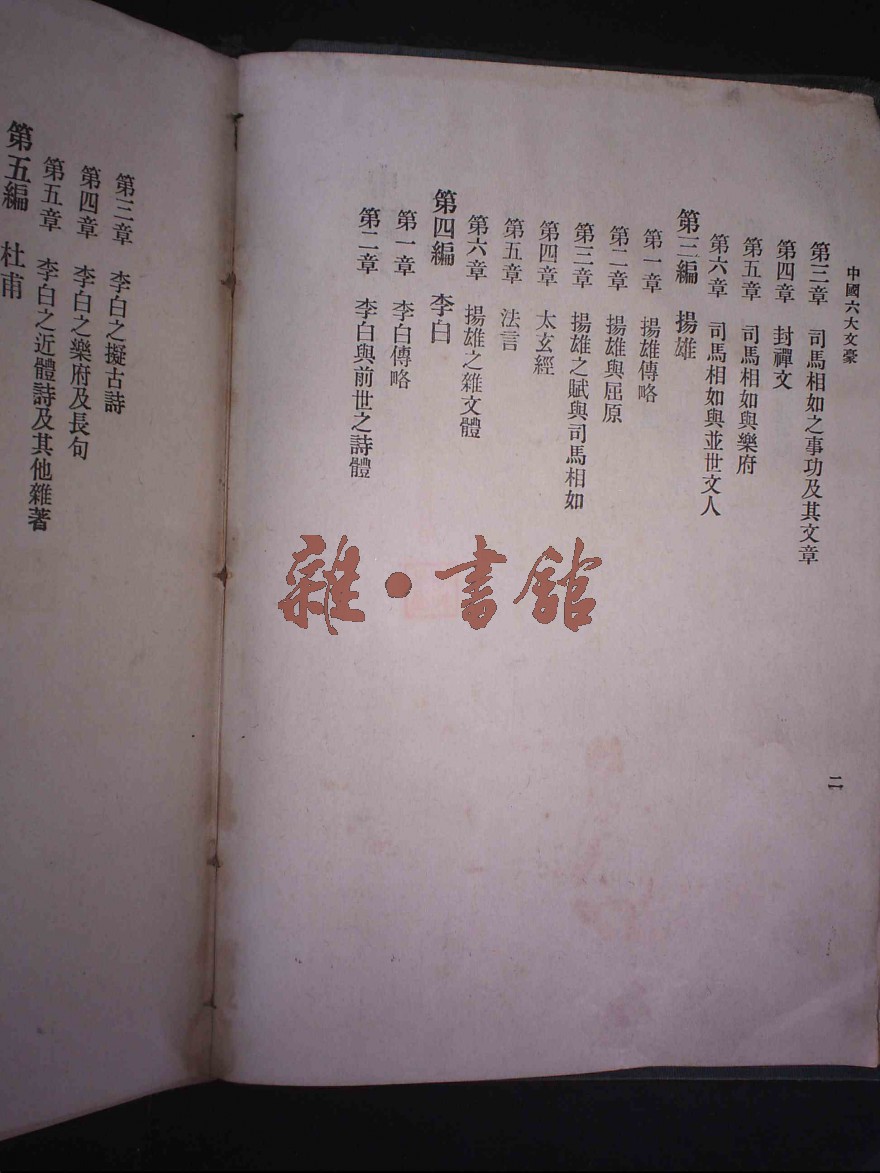 中國六大文豪
二
第三章　司馬相如之事功及其文章
第四章　封禪文
第五章　司馬相如與樂府
第六章　司馬相如與並世文人
第三編　揚雄
第一章　揚雄傳略
第二章　揚雄與屈原
第三章　揚雄之賦與司馬相如
第四章　太玄經
第五章　法言
第六章　揚雄之雜文體
第四編　李白
第一章　李白傳略
第二章　李白與前世之詩體
第三章　李白之擬古詩
第四章　李白之樂府及長句
第五章　李白之近體詩及其他雜著
第五編　杜甫
雜·書館